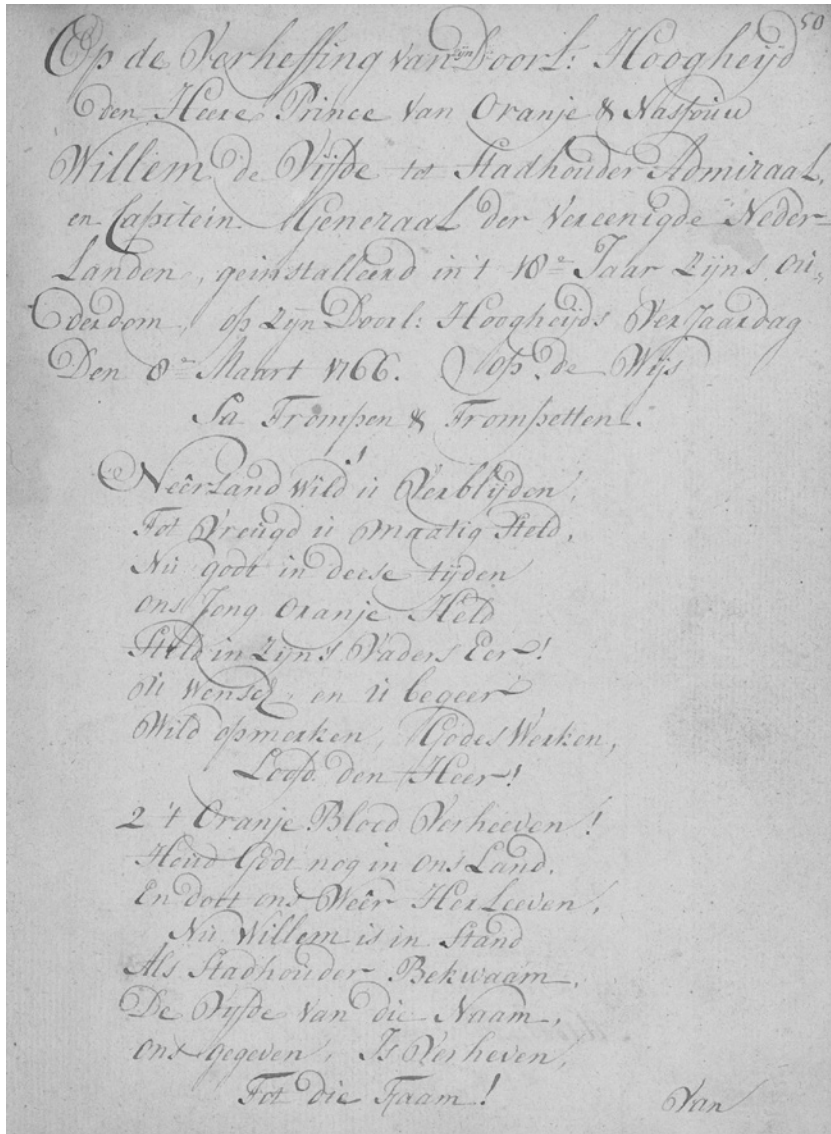 50
Op de Verheffing van zijn Doorl: Hoogheijd
den Heere Prince van Oranje & Nassouw
Willem de Vijfde tot Stadhouder Admiraal,
en Capitein Generaal der Vereenigde Neder-
Landen, geinstalleerd in 't 18e Jaar Zijns ou„
derdom, op Zijn Doorl: Hoogheijds VerJaardag
Den 8en Maart 1766. Op de Wijs
Sa Trompen & Trompetten.
Neêrland wild u Verblijden,
Tot Vreugd u maatig Steld,
Nu godt in deese tijden
ons Jong Oranje Held
Steld in Zijn's Vaders Eer!
Uw Wensch, en u begeer
Wild opmerken, Godes Werken,
Looft den Heer!
2 't Oranje Bloed Verheeven!
Houd Godt nog in ons Land,
En doet ons Weêr HerLeeven,
Nu Willem is in Stand
Als Stadhouder Bekwaam,
De Vijfde van die Naam,
ons gegeven, Is Verheven,
Tot die Faam!
Van